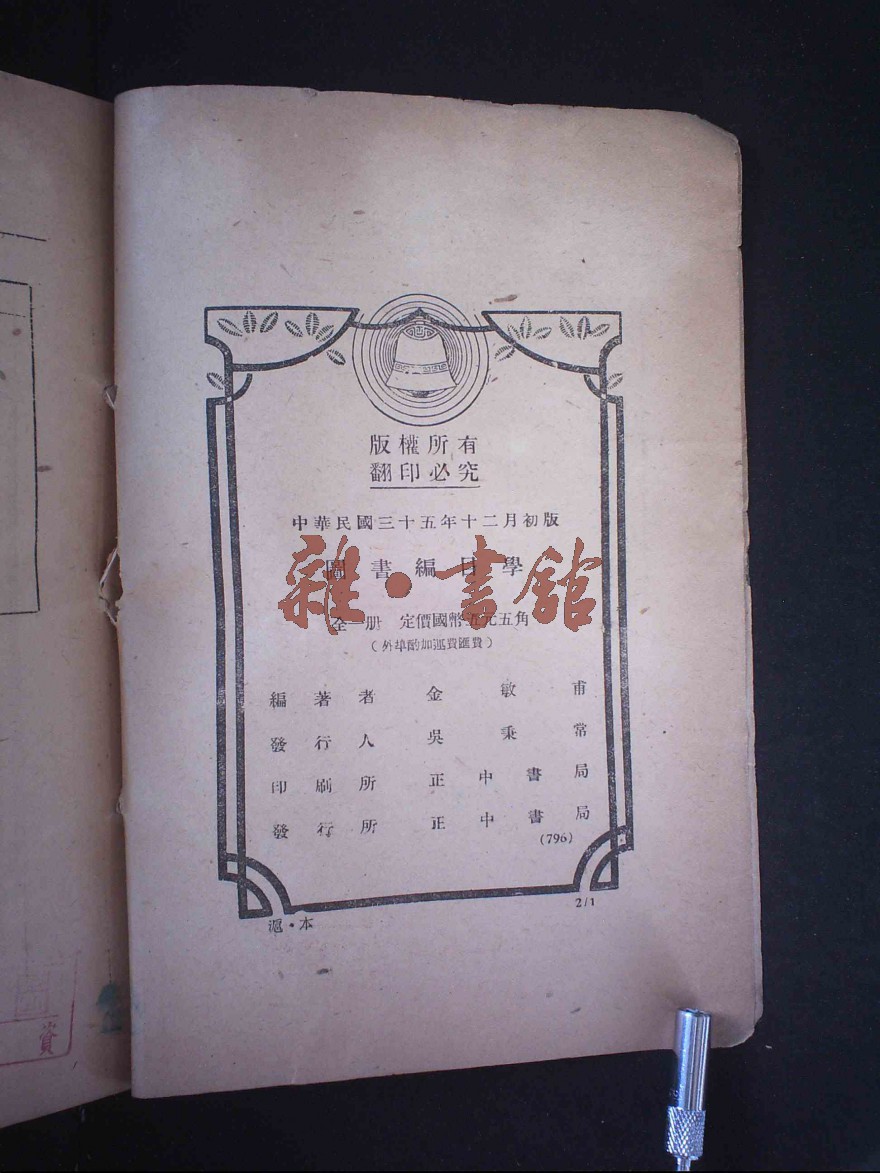 版權所有
翻印必究
中華民國三十五年十二月初版
圖書編目學
雜·書館
全一册 定價國幣五元五角
(外埠酌加運費匯費)
編著者 金敏甫
發行人 吳秉常
印刷所 正中書局
發行所 正中書局
(796)
滬·本
2/1
資